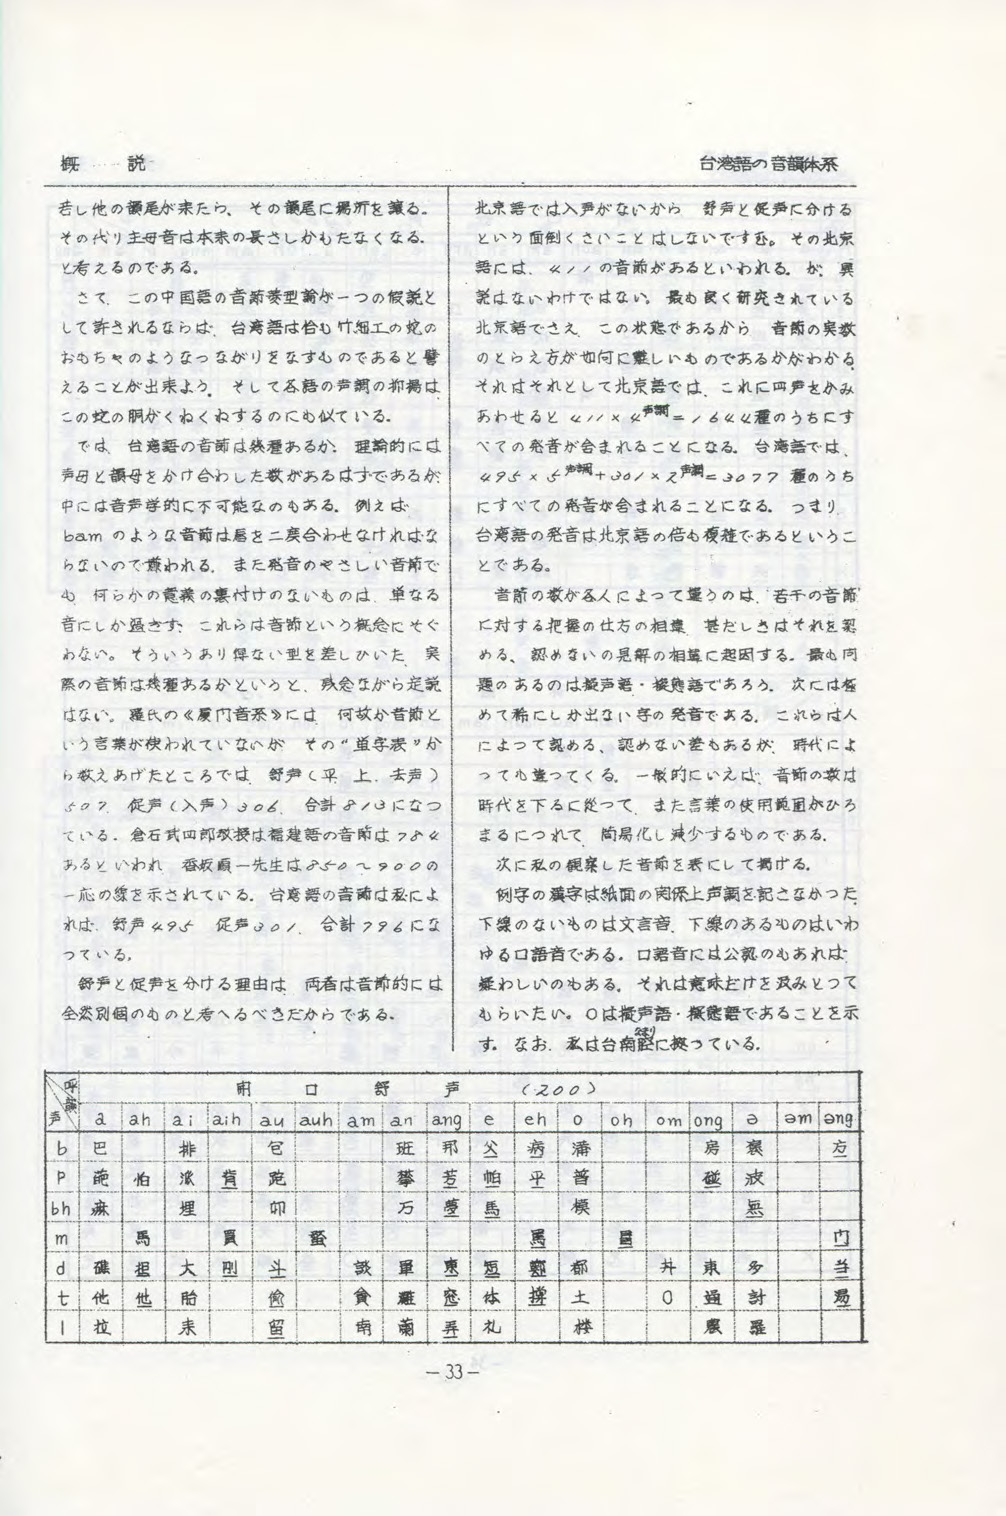 概……説
台湾語の音韻体系
若し他の韻尾が来たら、その韻尾に場所を譲る。
その代り主母音は本来の長さしかもたなくなる。
と考えるのである。
さて、この中国語の音節模型論が一つの仮説と
して許されるならば、台湾語は恰も竹細工の蛇の
おもちゃのようなつながりをなすものであると譬
えることが出来よう。そして各語の声調の抑揚は
この蛇の胴がくねくねするのにも似ている。
では、台湾語の音節は幾種あるか。理論的には
声母と韻母をかけ合わした数があるはずであるが
中には音声学的に不可能なのもある。例えば
bam のような音節は唇を二度合わせなければな
らないので嫌われる。また発音のやさしい音節で
も、何らかの意義の裏付けのないものは、単なる
音にしか過ぎず、これらは音節という概念にそぐ
わない。そういうあり得ない型を差しひいた、実
際の音節は幾種あるかというと、残念ながら定説
はない。羅氏の《厦门音系》には、何故か音節と
いう言葉が使われていないが、その“単字表”か
ら数えあげたところでは、舒声(平、上、去声)
507、促声(入声)306、合計813になつ
ている。倉石武四郎教授は福建語の音節は784
あるといわれ、香坂順一先生は850〜900の
一応の線を示されている。台湾語の音節は私によ
れば、舒声495、促声301、合計796にな
つている。
舒声と促声を分ける理由は、両者は音節的には
全然別個のものと考へるべきだからである。
北京語では入声がないから、舒声と促声に分ける
という面倒くさいことはしないですむ。その北京
語には、411の音節があるといわれる。が、異
説はないわけではない。最も良く研究されている
北京語でさえ、この状態であるから、音節の実数
のとらえ方が如何に難しいものであるかがわかる。
それはそれとして北京語では、これに四声をかみ
あわせると 411×4声調=1644種のうちにす
べての発音が含まれることになる。台湾語では、
495×5声調+301×2声調=3077 種のうち
にすべての発音が含まれることになる。つまり、
台湾語の発音は北京語の倍も複雑であるというこ
とである。
音節の数が各人によつて違うのは、若干の音節
に対する把握の仕方の相違、甚だしきはそれを認
める、認めないの見解の相違に起因する。最も问
題のあるのは擬声語・擬態語であろう。次には極
めて稀にしか出ない字の発音である。これらは人
によつて認める、認めない差もあるが、時代によ
つても違つてくる。一般的にいえば、音節の数は
時代を下るに従つて、また言葉の使用範囲がひろ
まるにつれて、简易化し減少するものである。
次に私の観察した音節を表にして掲げる。
例字の漢字は紙面の関係上声調を記さなかつた。
下線のないものは文言音、下線のあるものはいわ
ゆる口語音である。口語音には公認のもあれば
疑わしいのもある。それは意味だけを汲みとつて
もらいたい。〇は擬声語・擬態語であることを示
す。なお、私は台南腔に拠つている。
なまり
呼 韻 声 開口舒声 (200)
a ah ai aih au auh am an ang e eh o oh om ong ə əm əng
b 巴 排 包 班 邦 父 病 房 褒 方
p 葩 怕 派 跑 攀 芳 帕 平 普 碰 波
bh 麻 埋 卯 万 夢 馬 模 無
m 馬 買 罵 冒 门
d 礁 担 大 斗 談 単 東 短 鄭 都 丼 東 多 当
t 他 他 胎 偷 貪 難 窓 体 撐 土 〇 通 討 湯
l 拉 来 留 南 蘭 弄 礼 楼 農 羅
－33－